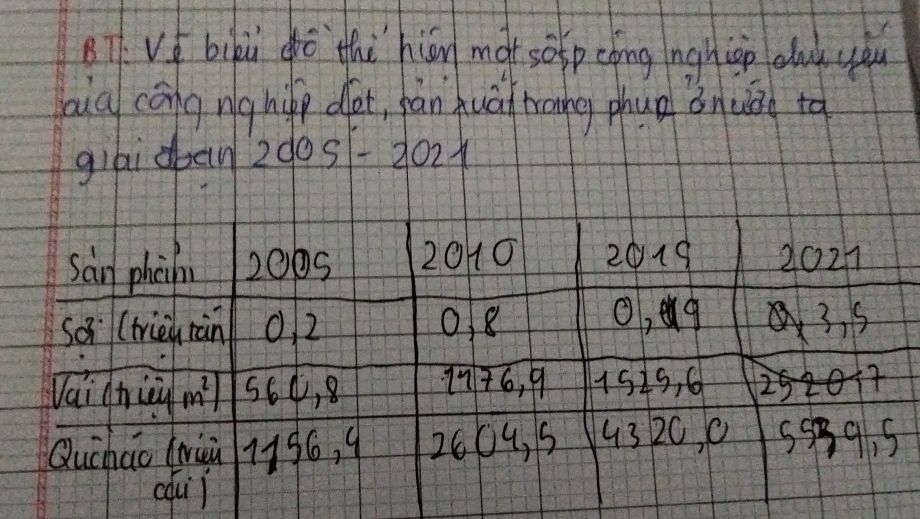 BT: Vẽ biểu đồ thể hiện một số sp công nghiệp chủ yếu
của công nghiệp dệt, sản xuất trang phục ở nước ta
giai đoạn 2005 - 2021
Sản phẩm 2005 2010 2015 2021
Sợi (triệu tấn 0,2 0,8 0,9 3,5
Vải (triệu m²) 560,8 1176,9 1525,6
Quần áo (triệu 1156,4 2604,5 4320,0 5539,5
cái)